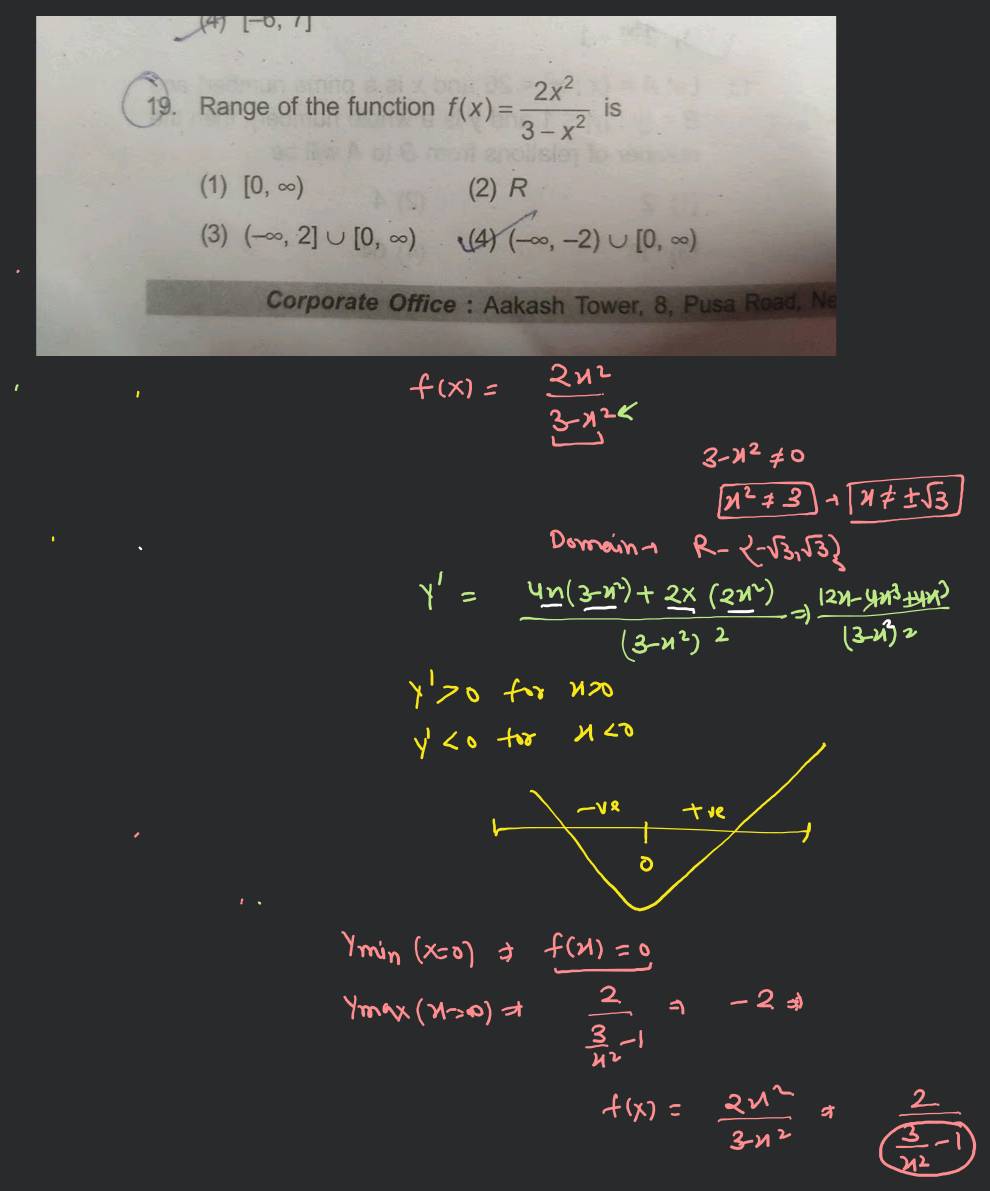 (4) [–6, 7]
19. Range of the function f(x) = 2x²/(3 – x²) is
(1) [0, ∞)
(2) R
(3) (–∞, 2] ∪ [0, ∞)
(4) (–∞, –2) ∪ [0, ∞)
Corporate Office : Aakash Tower, 8, Pusa Road, Ne
f(x) = 2x²/(3-x²)
3-x² ≠ 0
x² ≠ 3 → x ≠ ±√3
Domain → R - {-√3, √3}
y' = (4x(3-x²) + 2x(2x²))/(3-x²)² ⇒ (12x - 4x³ + 4x³)/(3-x²)²
y' > 0 for x>0
y' < 0 for x<0
-ve +ve
0
Ymin (x=0) ⇒ f(x) = 0
Ymax (x→∞) ⇒ 2/(3/x² - 1) ⇒ -2 ⇒
f(x) = 2x²/(3-x²) ⇒ 2/(3/x² - 1)